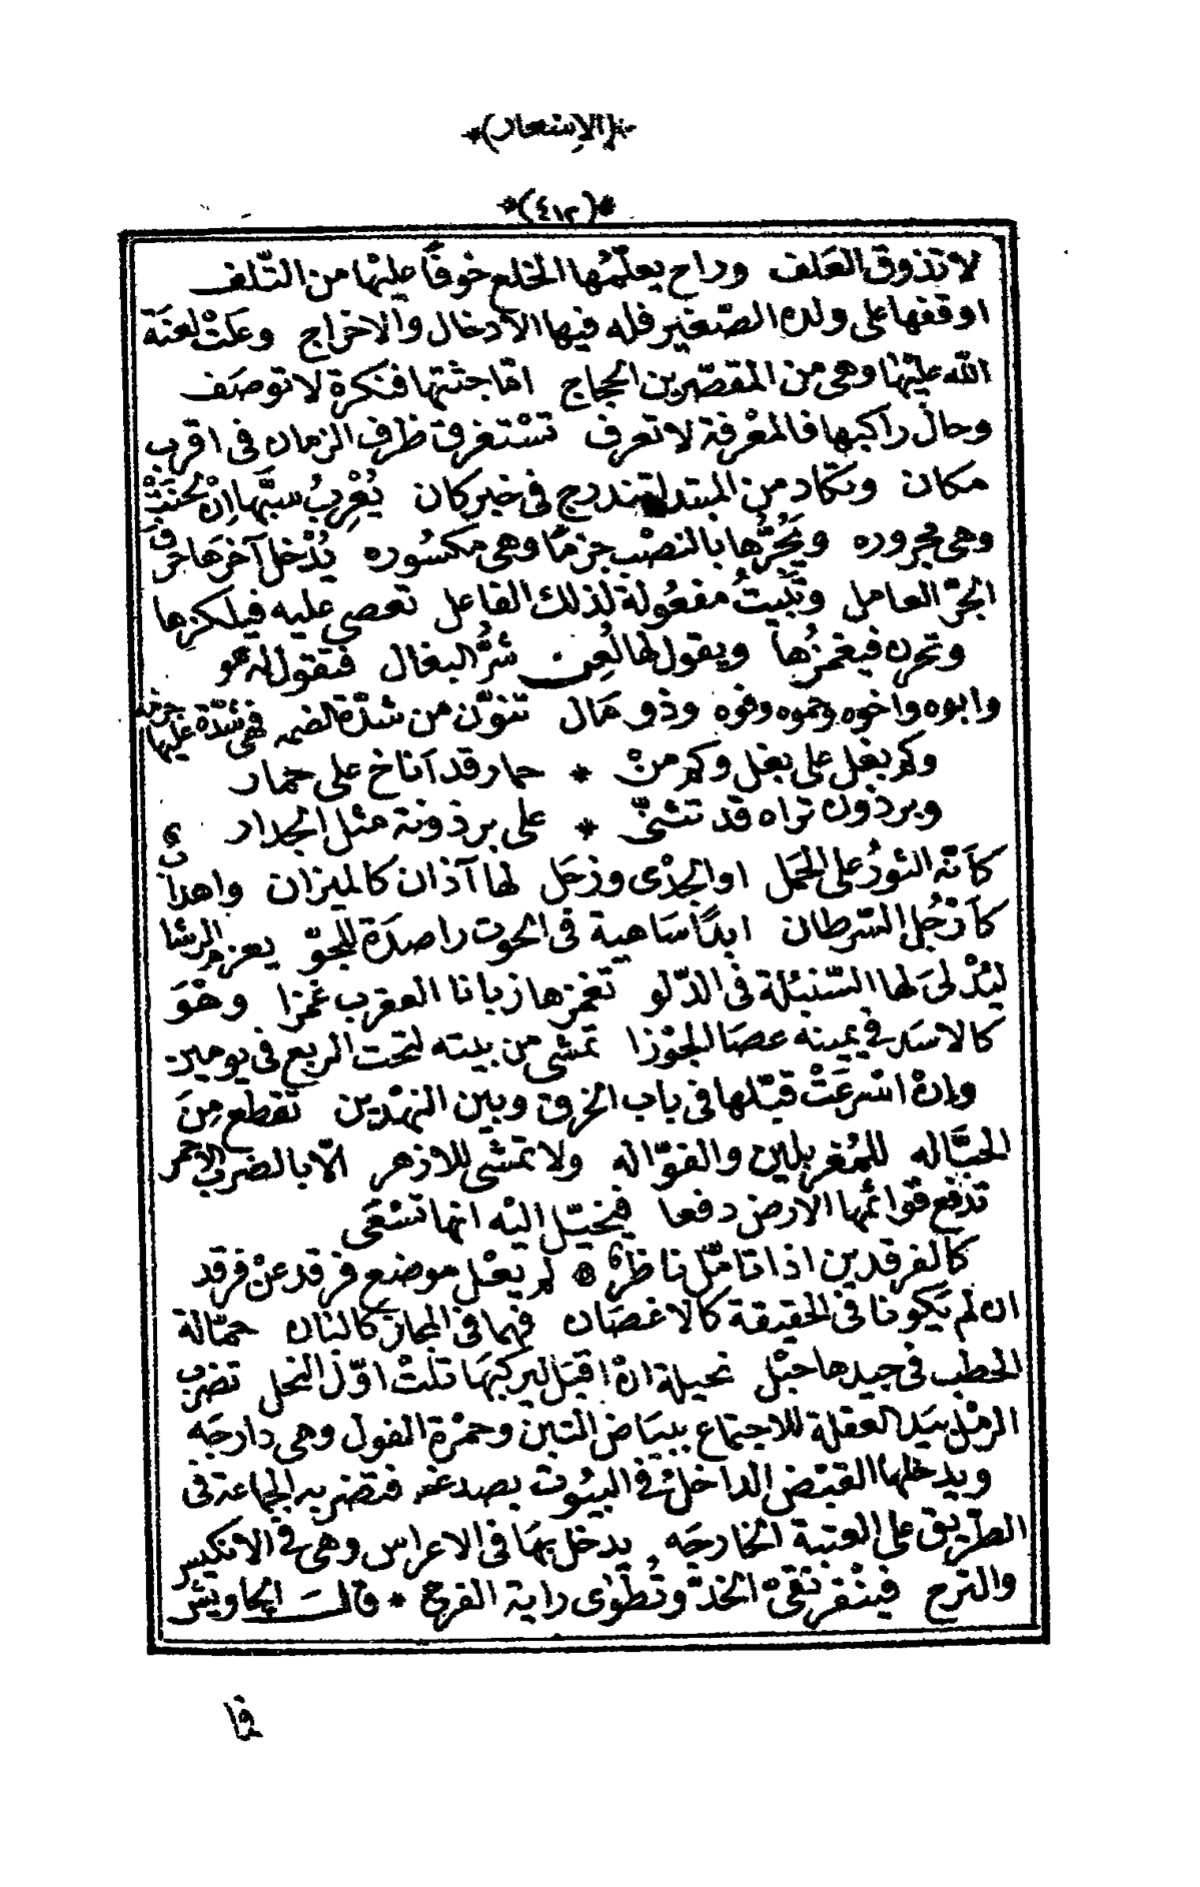 *(الاشعار)*
*(٤١٢)*
لا تذوق العَلف وراح يعلّمُها الخلع خوفًا عليْها من التّلف
اوقفها على ولده الصّغير فله فيها الادخال والاخراج وعَلتْ لعنَة
الله عليْها وهى من المقصّرين الحجاج امّا جثتها فنكرة لا توصَف
وحال راكبها فالمعْرفة لا تعرف تسْتغرق ظرف الزمان فى اقرب
مكان وتكاد من المبتدا تندرج فى خبر كان يُعْرِبُ سبَّها اِنْ
وهى مجروره ويَجُرُّها بالنصْب جزمًا وهى مكسُوره يُدْخل آخرَها حرف
الجرّ العامل وتَبيتُ مفعُولة لذلك الفاعل تعصى عليه فيلكزها
وتحرن فيغمزُها ويقول لها لُعِن شرُّ البغال فتقول له هو
وابوه واخوه وحموه وفوه وذو مَال تنوّن من شدّة الضمه فهى شدّة عليها
وكم بغل على بغل وكم منْ * حمار قد اناخ على حمار
وبرذون تراه قد تشخّى * على برذونة مثل الجدار
كأنّه الثورُ على الحمَل او الجدْى وزحَل لها آذان كالميزان واهداب
كأرْجُل السّرطان ابدًا سَاهية فى الحوت راصدَة للجوّ يعزم الرشا
ليُدْلىَ لها السّنبُلة فى الدّلو تغمزها زبانا العقرب غمزا وهْوَ
كالاسَد فى يمينه عصَا الجَوْزا تمشى من بيته لتحت الربع فى يومين
وانْ اسْرعَتْ قبّلها فى باب الخرق وبين النهْدين تقطع مِنَ
الحبَّاله للمُغربلين والفوّاله ولا تمشى للازهر الّا بالضرب الاحمر
تدفع قوائمها الارض دفعا فيخيّل اليْه انها تسْعَى
كالفرقدين اذا تامّل ناظرٌ * لم يعْل موضع فرقد عنْ فرقد
ان لم يَكونا فى الحقيقة كالاغصَان فهما فى المجاز كالنان حمّالة
الحطب فى جيدها حبْل نحيلة انْ اقبَل ليركبَها تلتْ اوّل النحل تضرب
الرمْل بيَد العقلة للاجتماع ببيَاض التبن وحمْرة الفول وهى دارجَه
ويدخلها القبْض الداخل فى البيُوت بصدغه فتضربه الجماعة فى
الطّريق على العتبة الخارجَه يدخل بهَا فى الاعراس وهى فى الانكيس
والترح فينْفر نقىّ الخدّ وتُطوٰى راية الفرح * قالت الجاويش
فا